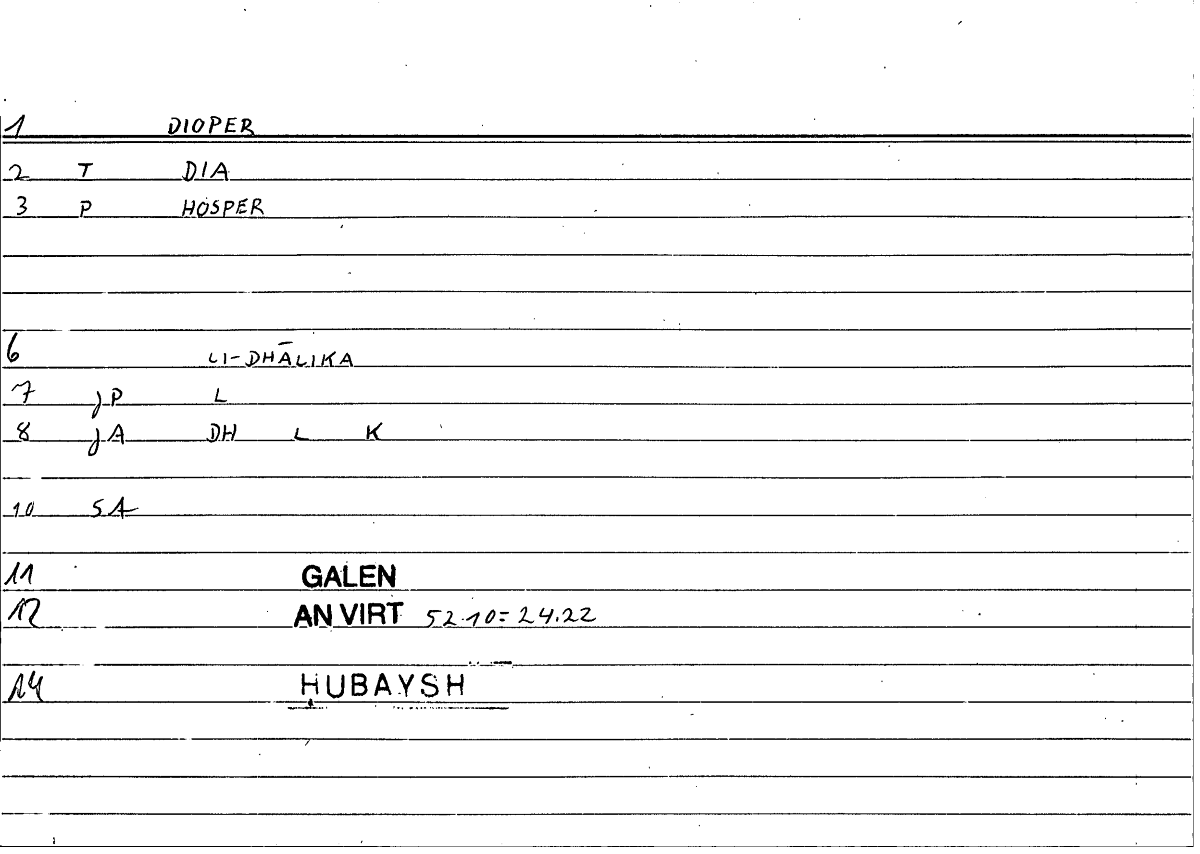 1 DIOPER
2 T DIA
3 P HOSPER
6 LI-DHĀLIKA
7 jP L
8 jA DH L K
10 SA
11 GALEN
12 AN VIRT 52.10=24.22
14 HUBAYSH